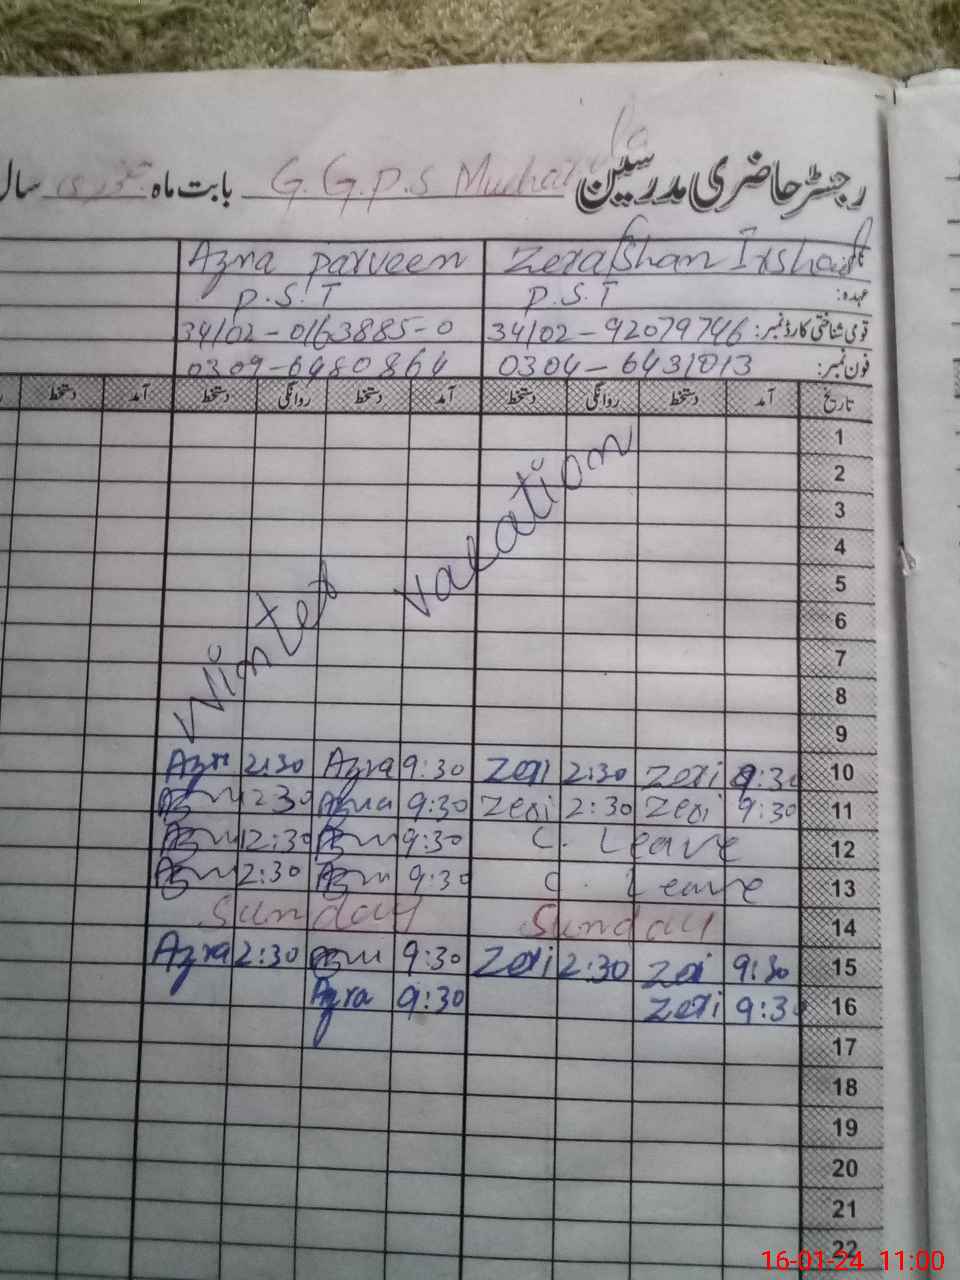 رجسٹر حاضری مدرسین G.G.P.S بابت ماہ جنوری سال
Zerafshan Irshad Azra Parveen
عہدہ: P.S.T P.S.T
قومی شناختی کارڈ نمبر: 34102-92079746 34102-0163885-0
فون نمبر: 0304-6431013 0309-6480864
تاریخ آمد دستخط روانگی دستخط آمد دستخط روانگی دستخط آمد دستخط
1
2
3
4
5
6
7
8
9
Winter Vacation
10 9:30 Zeri 2:30 Zeri 9:30 Azra 2:30 Azra
11 9:30 Zeri 2:30 Zeri 9:30 Azra 2:30 Azra
12 C. Leave 9:30 Azra 2:30 Azra
13 C. Leave 9:30 Azra 2:30 Azra
14 Sunday Sunday
15 9:30 Zeri 2:30 Zeri 9:30 Azra 2:30 Azra
16 9:30 Zeri 9:30 Azra
17
18
19
20
21
22
16-01-24 11:00